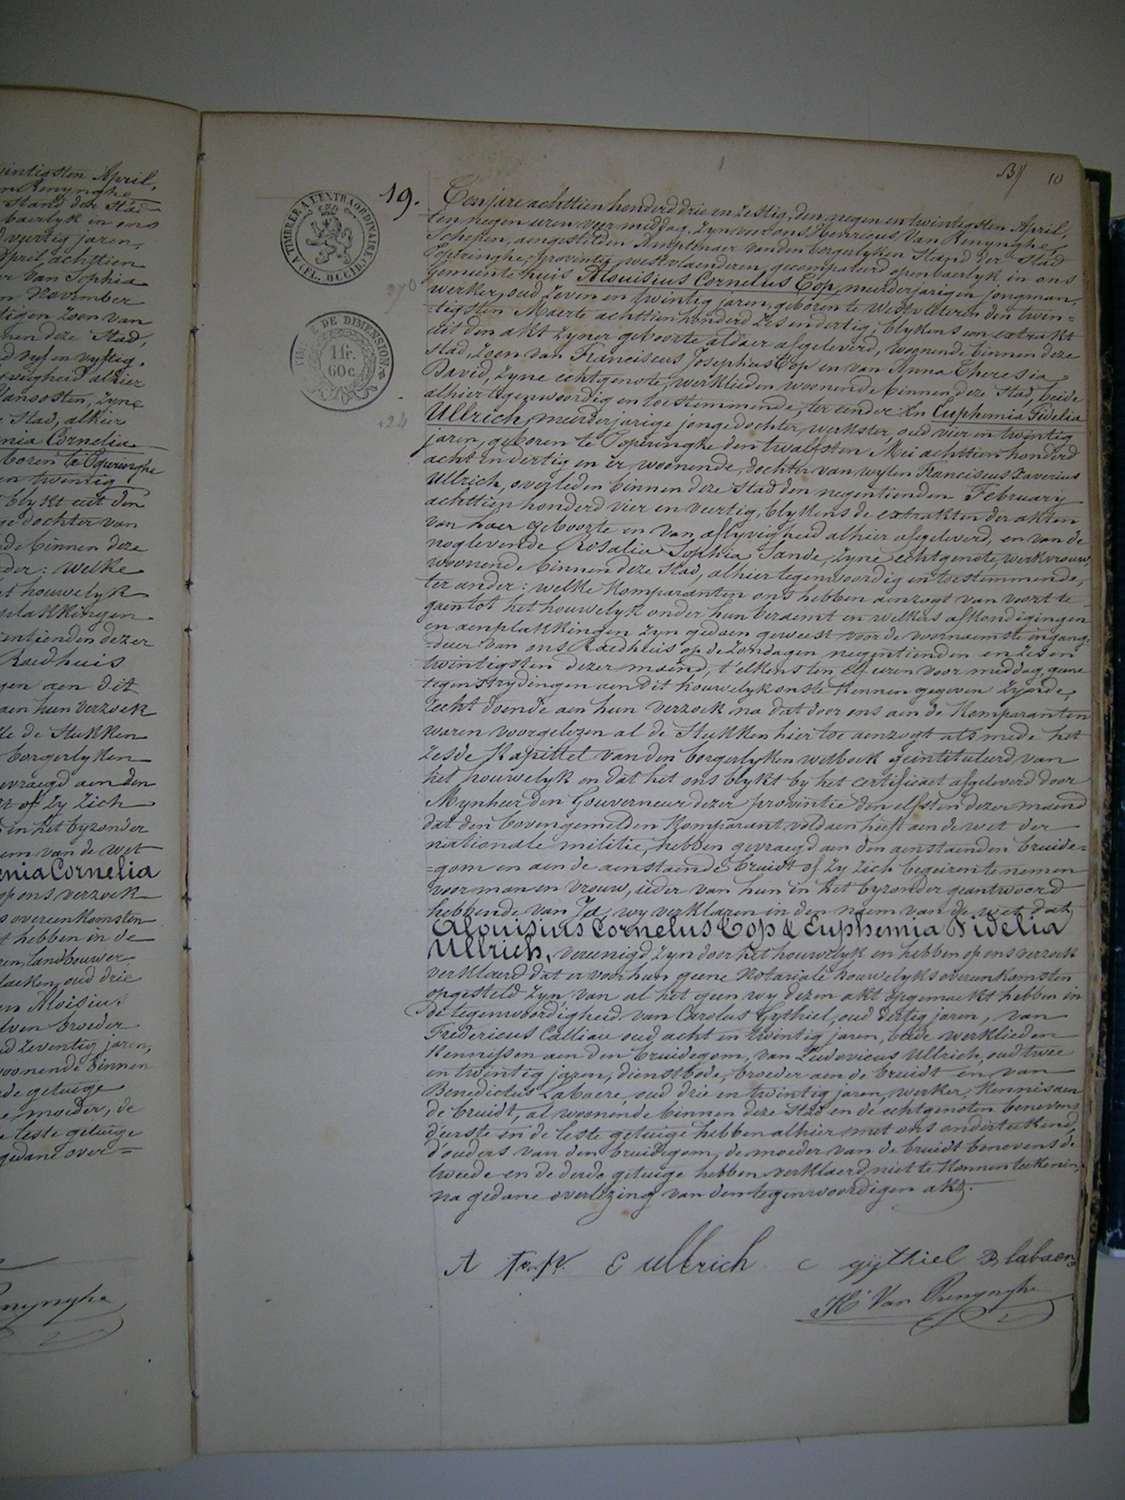 uintigsten April,
n Renynghe
Stand der Stad
baerlyk in ons
d viertig jaren,
April achttien
er van Sophia
n November
tigen zoon van
nen deze Stad,
d vyf en vyftig,
vigheid alhier
Stad, alhier
mia Cornelia
boren te Poperinghe
en twintig
blykt uit den
ge dochter van
de binnen deze
der: welke
t houwelyk
plakkingen
entienden dezer
Raedhuis
gen aen dit
aen hun verzoek
le de Stukken
borgerlyken
evraegd aen den
t of zy zich
in het byzonder
em van de wet
enia Cornelia
op ons verzoek
s overeenkomsten
t hebben in de
ren, landbouwer
laeken, oud drie
an Aloisius
lven broeder
d zeventig jaren,
woonende binnen
de getuige
e moeder, de
e leste getuige
gedane over=
nynghe
B/ 10
TIMBRE A L'EXTRAORDINAIRE
(FL. OCCID.)
DE DIMENSION
1 fr.
60 c.
19. Ten jare achttien honderd drie en zestig, den negen en twintigsten April,
ten negen uren voor middag, zyn voor ons Henricus Van Renynghe,
Schepen, aengestelden Amptenaer van den borgerlyken Stand der Stad
Poperinghe, provintie westvlaenderen, gecompareerd openbaerlyk in ons
gemeente huis Alouisius Cornelus Cop, meerderjarigen jongman,
werker, oud zeven en twintig jaren, geboren te Westvleteren den twin=
=tigsten Maerte achttien honderd zes en dertig, blykens een extrakt
uit den akt zyner geboorte aldaer afgeleverd, woonende binnen deze
stad, zoon van Franciscus Josephus Cop en van Anna Theresia
David, zyne echtgenote, werklieden woonende binnen deze Stad, beide
alhier tegenwoordig en toestemmende, ter eender En Euphemia Fidelia
Ullrich, meerderjarige jonge dochter, werkster, oud vier en twintig
jaren, geboren te Poperinghe den twalfsten Mei achttien honderd
acht en dertig en er woonende, dochter van wylen Franciscus Xaverius
Ullrich, overleden binnen deze Stad den negentienden February
achttien honderd vier en veertig, blykens de extrakten der akten
van haer geboorte en van aflyvigheid alhier afgeleverd, en van de
noglevende Rosalia Sophia Sande, zyne echtgenote, werkvrouw,
woonende binnen deze Stad, alhier tegenwoordig en toestemmende,
ter ander: welke komparanten ons hebben aenzogt van voort te
gaen tot het houwelyk onder hun beraemt en welkers afkondigingen
en aenplakkingen zyn gedaen geweest voor de voornaemste ingang
=deur van ons Raedhuis op de zondagen negentienden en zes en
twintigsten dezer maend, t'elkens ten elf uren voor middag, geene
tegenstrydingen aen dit houwelyk ons te kennen gegeven zynde,
recht doende aen hun verzoek na dat door ons aen de komparanten
waren voorgelezen al de Stukken hier toe aenzogt als mede het
zesde kapittel van den borgerlyken wetboek geintituleerd van
het houwelyk en dat het ons blykt by het certificaet afgeleverd door
Mynheer den Gouverneur dezer provintie den elfsten dezer maend
dat den bovengemelden komparant voldaen heeft aen de wet der
nationale militie, hebben gevraegd aen den aenstaenden bruide=
=gom en aen de aenstaende bruidt of zy zich begeiren te nemen
voor man en vrouw, ieder van hun in het byzonder geantwoord
hebbende van Ja, wy verklaren in den naem van de wet dat
Alouisius Cornelus Cop & Euphemia Fidelia
Ullrich, vereenigd zyn door het houwelyk en hebben op ons verzoek
verklaerd dat er voor hun geene notariale houwelyks overeenkomsten
opgesteld zyn van al het geen wy dezen akt opgemaekt hebben in
de tegenwoordigheid van Carolus Gythiel, oud dertig jaren, van
Fredericus Calliau oud acht en twintig jaren, beide werklieden
kennissen aen den bruidegom, van Ludovicus Ullrich, oud twee
en twintig jaren, dienstbode, broeder aen de bruidt en van
Benedictus Labaere, oud drie en twintig jaren, werker, kennis aen
de bruidt, al woonende binnen deze Stad en de echtgenoten benevens
d'eerste en de leste getuige hebben alhier met ons onderteekend,
d'ouders van den bruidegom, de moeder van de bruidt benevens de
tweede en de derde getuige hebben verklaerd niet te konnen teekenen,
na gedane overlezing van den tegenwoordigen akt.
A Cop E ullrich C gijthiel B labaere
H. Van Renynghe